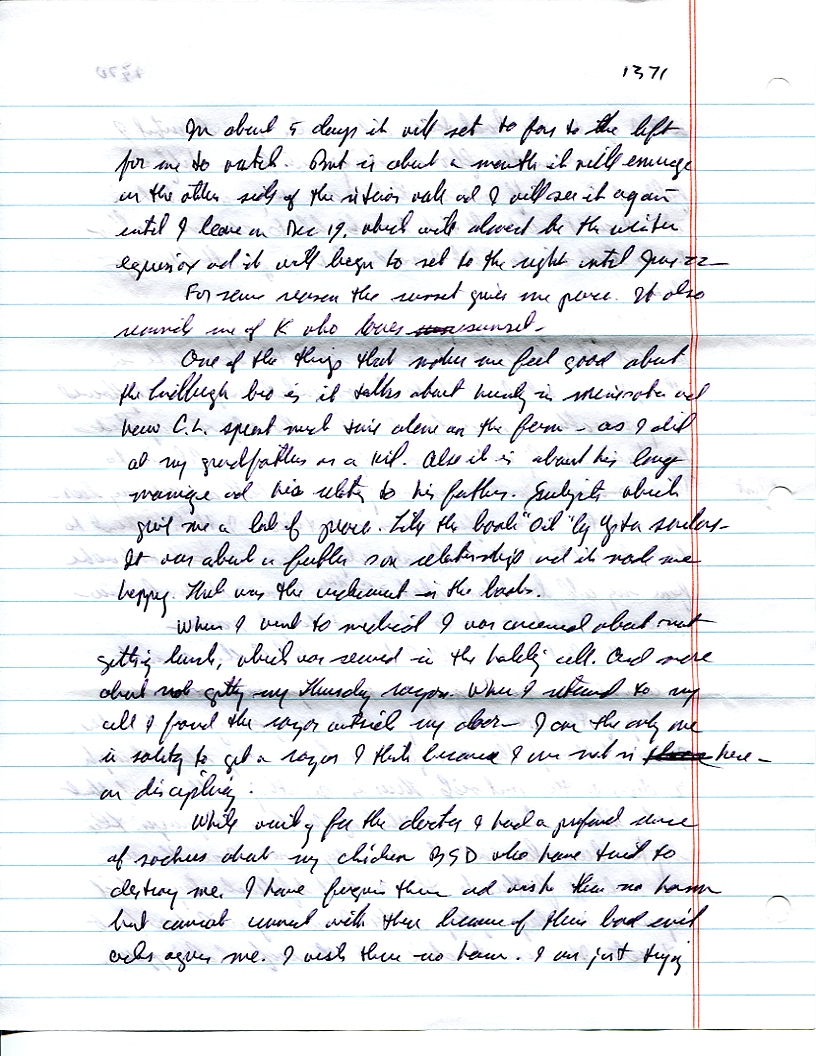 1371
In about 5 days it will set to far to the left
for me to watch. But in about a month it will emerge
on the other side of the interior wall ad I will see it again
until I leave on Dec 19, which will almost be the winter
equinox ad it will begin to set to the right until June 22 -
For some reason the sunset gives me peace. It also
reminds me of K who loves sunset -
One of the things that makes me feel good about
the Lindbergh bio is it talks about in Minnesota ad
how C.L. spent much time alone on the farm - as I did
at my grandfathers as a kid. Also it is about his long
marriage ad his relaty to his father. Subjects which
give me a lot of peace. Like the book "Oil" by Upton Sinclair -
It was about a father son relationship ad it made me
happy. That was the in the books.
When I went to medical I was concerned about not
getting lunch, which was served in the holding cell. And more
about not getting my Thursday razor. When I returned to my
cell I found the razor outside my door - I am the only one
in solity to get a razor I think because I am not in here -
on discipline.
While waitig for the doctor I had a profound sense
of sadness about my children BSD who have tried to
destroy me. I have forgiven them ad wish them no harm
but cannot connect with them because of their bad evil
acts against me. I wish them no harm. I am just trying